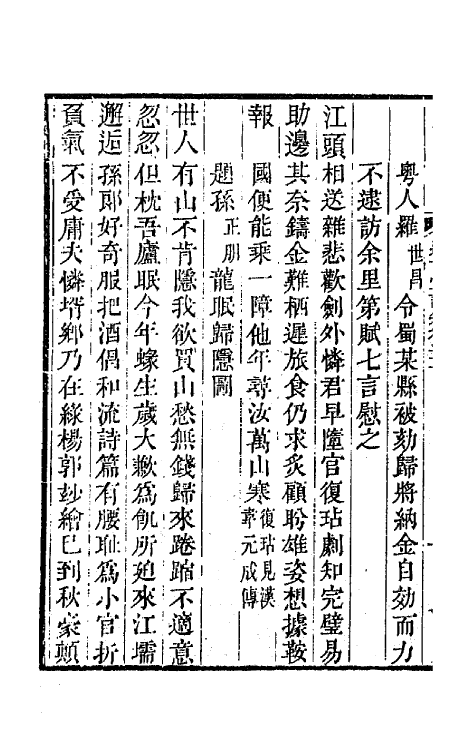 粵人羅世昌令蜀某縣被劾歸將納金自効而力
不逮訪余里第賦七言慰之
江頭相送雜悲歡劍外憐君早墮官復玷劇知完璧易
助邊其奈鑄金難栖遲旅食仍求炙顧盼雄姿想據鞍
報國便能乘一障他年尋汝萬山寒復玷見漢韋元成傳
題孫正朋龍眠歸隱圖
世人有山不肯隱我欲買山愁無錢歸來踡跼不適意
忽忽但枕吾廬眠今年蝝生歲大歉為飢所迫來江壖
邂逅孫郎好奇服把酒倡和流詩篇有腰恥為小官折
負氣不受庸夫憐壻鄉乃在綠楊郭玅繪已到秋豪顛